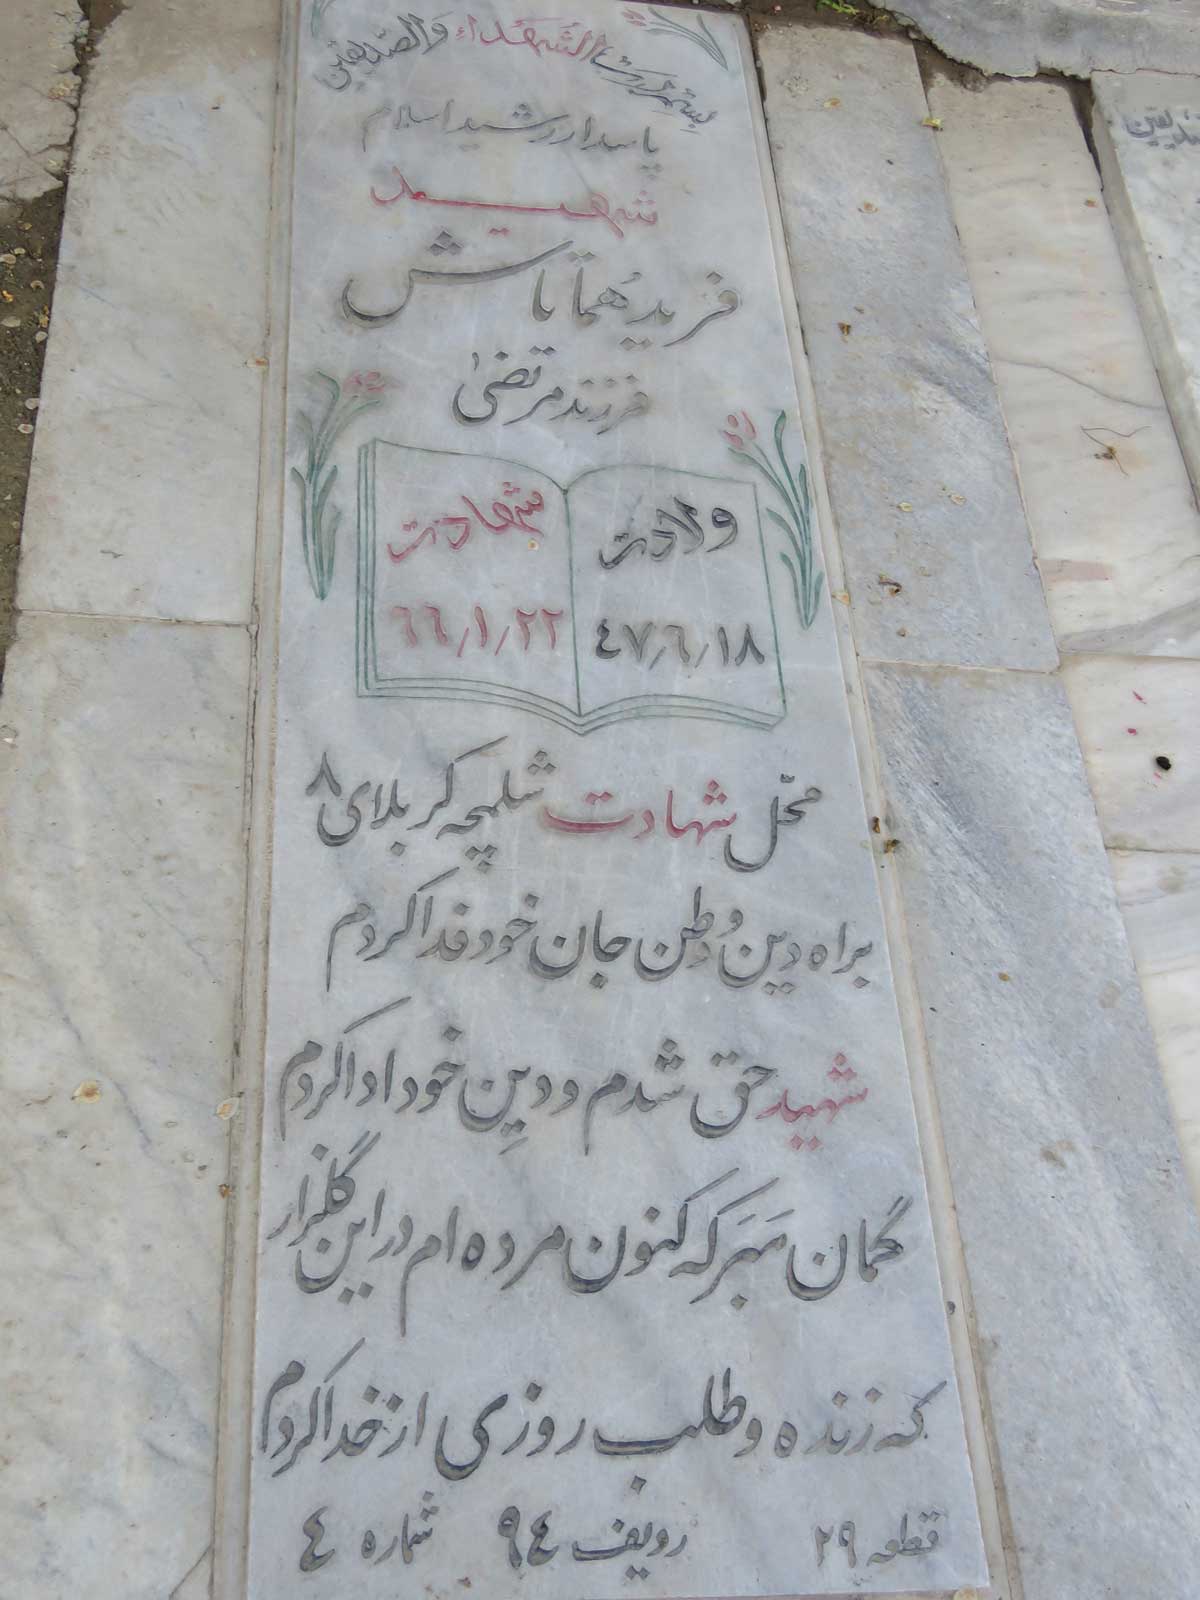 بسم رب الشهداء والصدیقین
پاسدار رشید اسلام
شهید
فرید هماتاش
فرزند مرتضیٰ
ولادت شهادت
۴۷٫۶٫۱۸ ۶۶٫۱٫۲۲
محّل شهادت شلمچه کربلای ۸
براه دین وُطن جان خود فدا کردم
شهید حق شدم و دِین خود ادا کردم
گمان مَبَر که کنون مرده ام در این گلزار
که زنده و طلب روزی از خدا کردم
قطعه ۲۹ ردیف ۹۴ شماره ۴
صدیقین